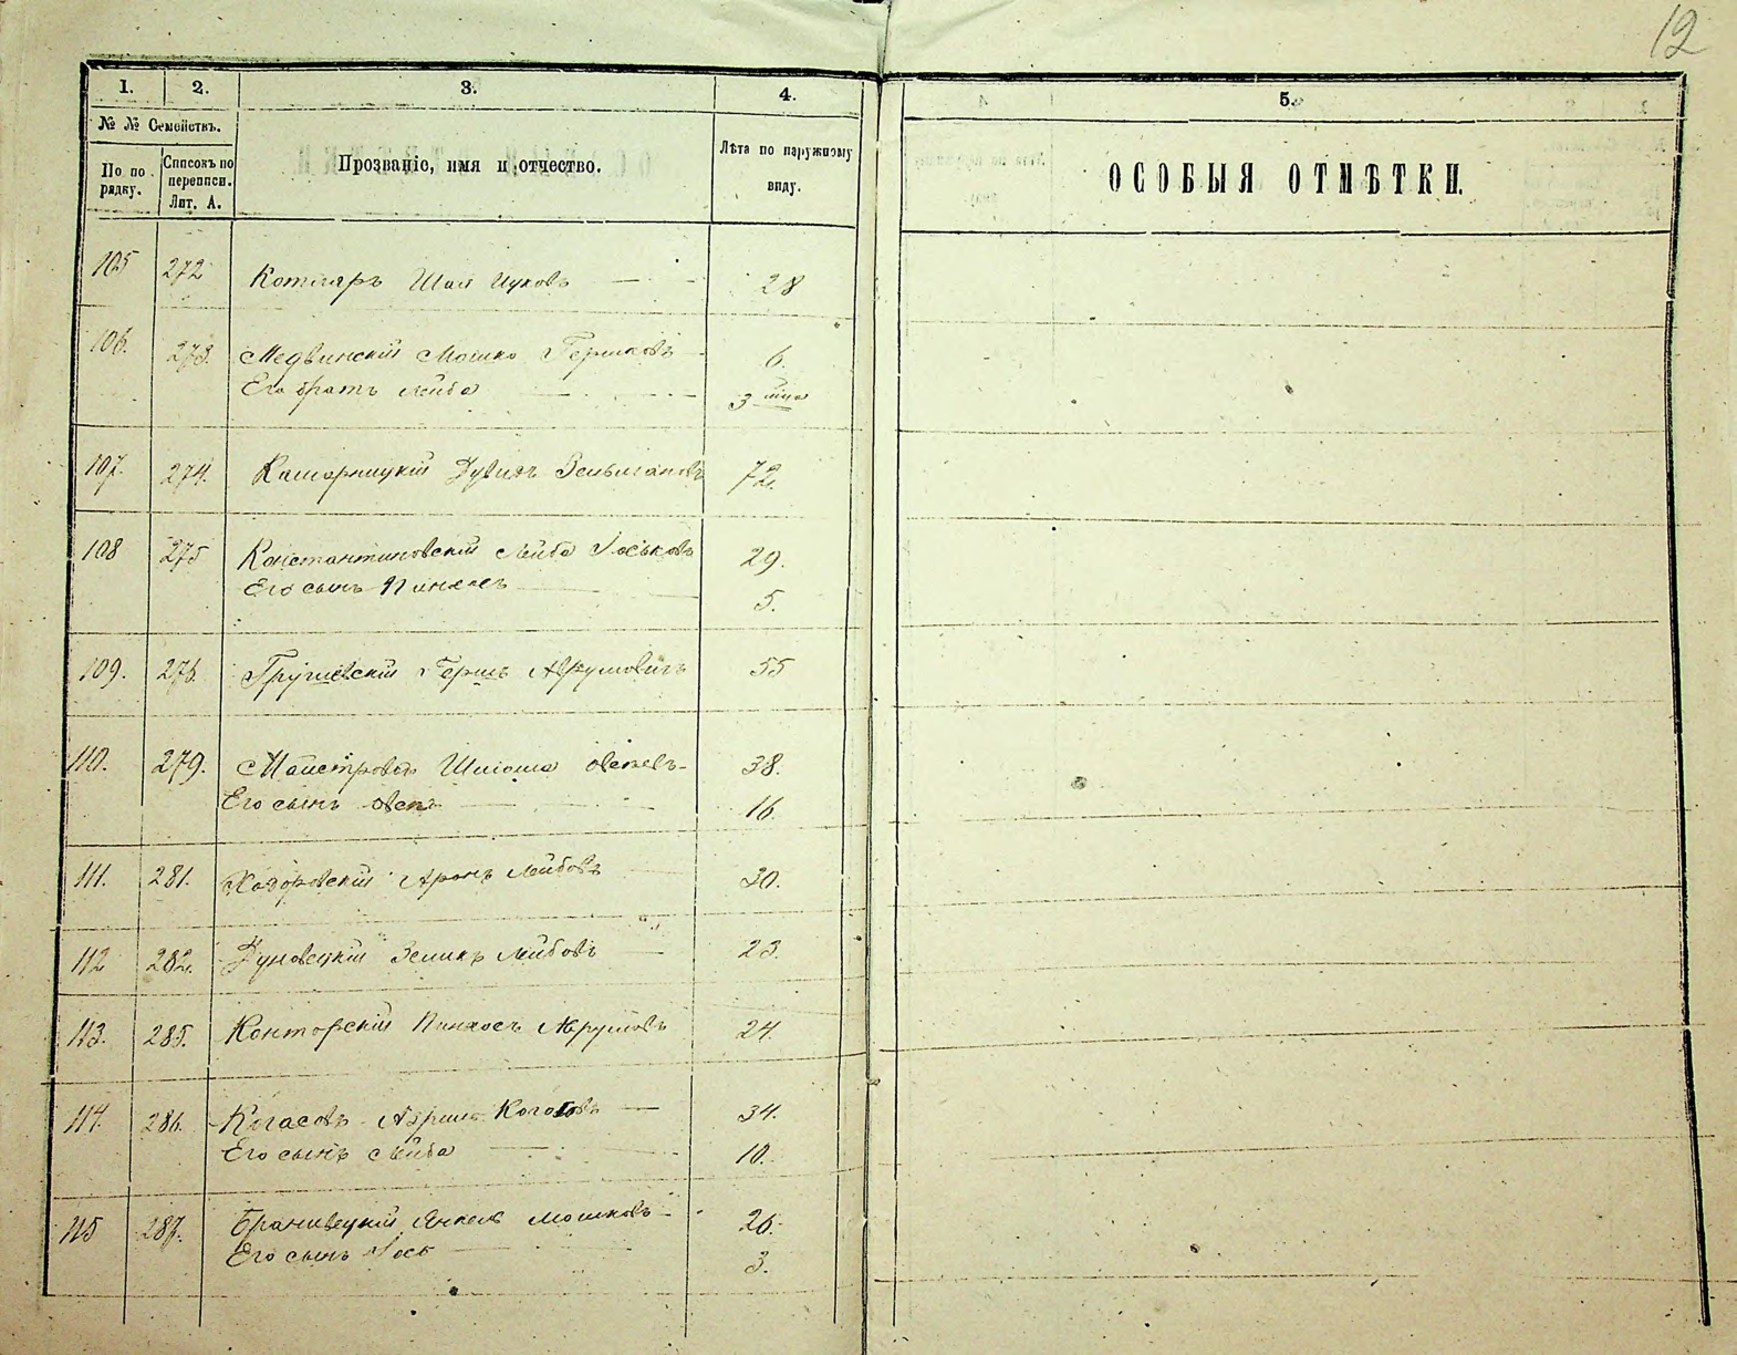 12
1. 2. 3. 4. 5.
№ № Семействъ.
По порядку.
Списокъ по переписи. Лит. А.
Прозваніе, имя и отчество.
Лѣта по наружному виду.
ОСОБЫЯ ОТМѢТКИ.
105 272 Котляръ Шая Ицковъ 28
106. 273. Медвинскій Мошко Гершковъ 6.
Его братъ Лейба 3
107. 274. Дувидъ Зельмановъ 72.
108 275 Константиновскій Лейба Іоськовъ 29.
Его сынъ Пинхасъ 5.
109. 276. Грушевскій Гершъ 55
110. 279. Майстровой Шлiома Овсіевъ 38.
Его сынъ 16
111. 281. Ходоровскій Аронъ Лейбовъ 30.
112 282. Дуновецкій Зеликъ Лейбовъ 23.
113. 285. Конторскій Пинхосъ Аврумовъ 24.
114. 286. 34.
Его сынъ Лейба 10.
115 287. Янкель Мошковъ 26.
Его сынъ Іось 3.